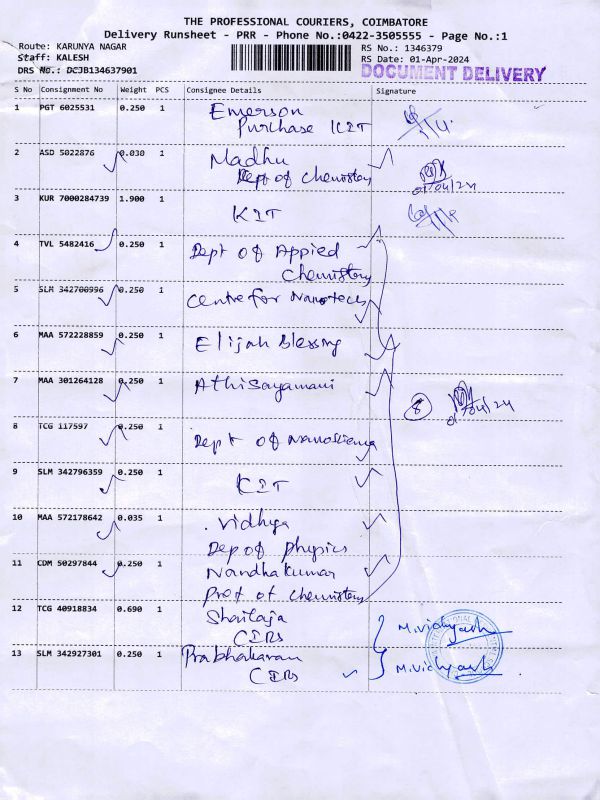 THE PROFESSIONAL COURIERS, COIMBATORE
Delivery Runsheet - PRR - Phone No.:0422-3505555 - Page No.:1
Route: KARUNYA NAGAR
RS No.: 1346379
Staff: KALESH
RS Date: 01-Apr-2024
DRS No.: DCJB134637901
DOCUMENT DELIVERY
S No Consignment No Weight PCS Consignee Details Signature
1 PGT 6025531 0.250 1 Emerson
Purchase KIT
2 ASD 5022876 0.030 1 Madhu
Dept of Chemistry
01/04/24
3 KUR 7000284739 1.900 1 KIT
4 TVL 5482416 0.250 1 Dept of Appied
Chemistry
5 SLM 342700996 0.250 1 Centre for Nanotech
6 MAA 572228859 0.250 1 Elijah Blessing
7 MAA 301264128 0.250 1 Athisayamani
8
01/04/24
8 TCG 117597 0.250 1 Dept of Nanoscience
9 SLM 342796359 0.250 1 KIT
10 MAA 572178642 0.035 1 Vidhya
Dep of Physics
11 CDM 50297844 0.250 1 Nandhakumar
Prof of Chemistry
12 TCG 40918834 0.690 1 Shailaja
CIRS
M.Vidhyash
13 SLM 342927301 0.250 1 Prabhakaran
CIRS
M.Vidhyash